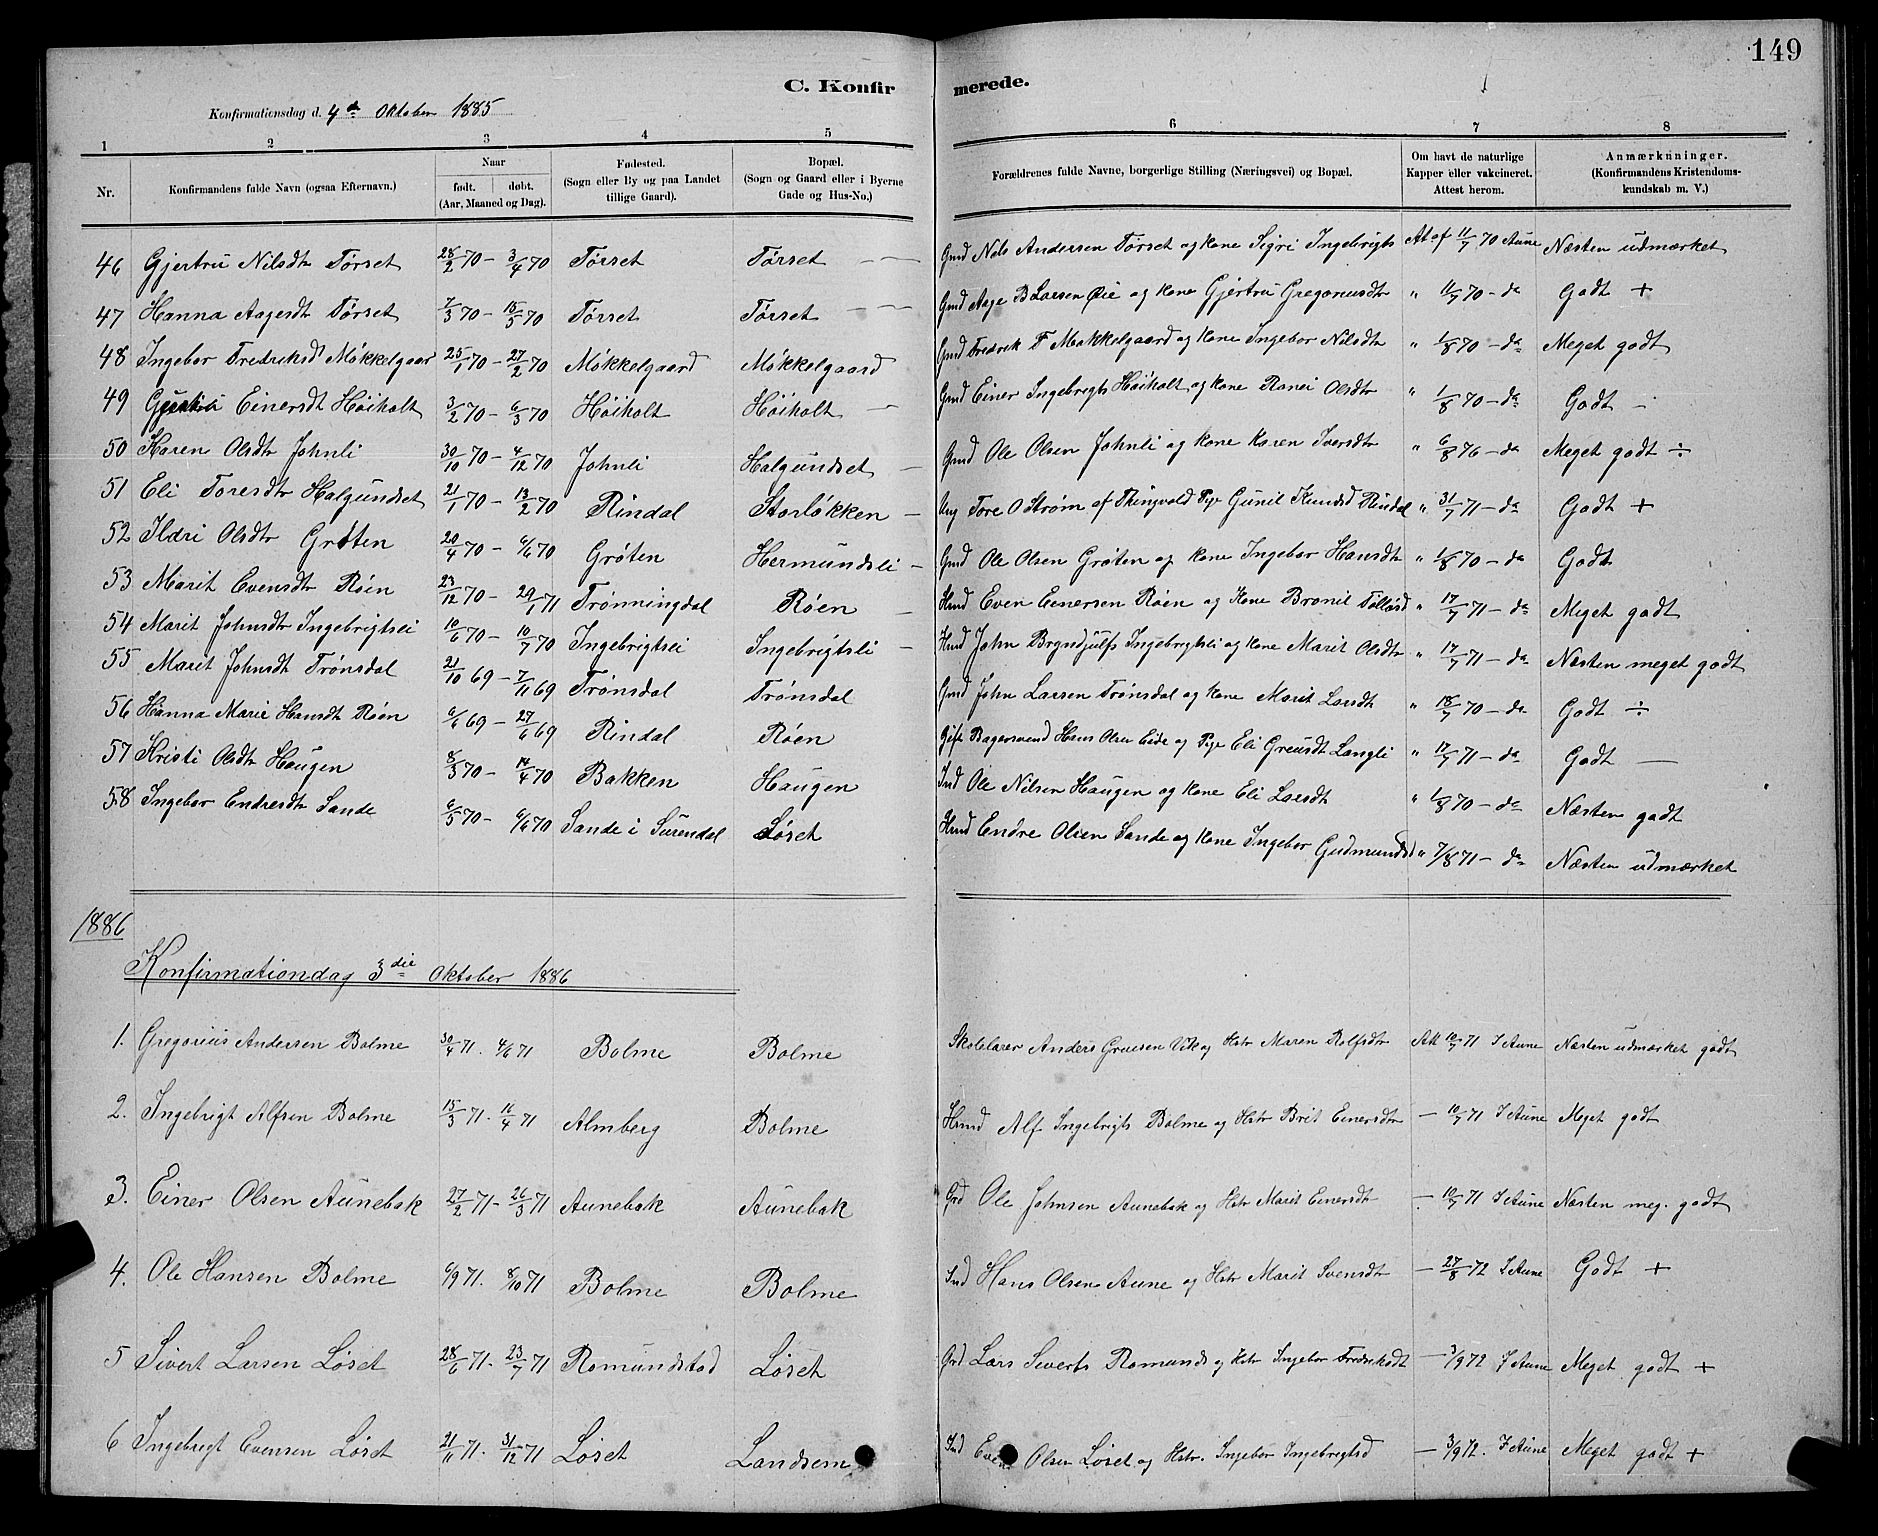 149
C. Konfirmerede.
Konfirmationsdag d. 4de Oktober 1885
1 2 3 4 5 6 7 8
Nr. Konfirmandens fulde Navn (ogsaa Efternavn.) Naar født. døbt. (Aar, Maaned og Dag). Fødested. (Sogn eller By og paa Landet tillige Gaard). Bopæl. (Sogn og Gaard eller i Byerne Gade og Hus-No.) Forældrenes fulde Navne, borgerlige Stilling (Næringsvei) og Bopæl. Om havt de naturlige Kapper eller vakcineret. Attest herom. Anmærkninger. (Konfirmandens Kristendomskundskab m. V.)
46 Gjertru Nilsdtr Tørset 28/2 70 – 3/4 70 Tørset Tørset Gmd Nils Andersen Tørset og Kone Sigri Ingebrigts At af 11/7 70 Aune Næsten udmærket
47 Hanna Aagesdt Tørset 7/3 70 – 15/5 70 Tørset Tørset Gmd Aage B Larsen Øie og Kone Gjertru Gregoriusdtr " 11/7 70 – do Godt +
48 Ingebor Fredriksdt Møkkelgaar 25/1 70 – 27/2 70 Møkkelgaard Møkkelgaard Gmd Fredrik F Møkkelgaard og Kone Ingebor Nilsdtr " 1/8 70 – do Meget godt
49 Gjertru Einersdt Høiholt 3/2 70 – 6/3 70 Høiholt Høiholt Gmd Einer Ingebrigts Høiholt og Kone Ranei Olsdtr " 1/8 70 – do Godt –
50 Karen Olsdtr Johnli 30/10 70 – 4/12 70 Johnli Halgundset Gmd Ole Olsen Johnli og Kone Karen Iversdtr " 6/8 76 – do Meget godt ÷
51 Eli Toresdtr Halgundset 21/1 70 – 13/2 70 Rindal Storløkken Ung Tore O Strøm af Thingvold Pige Gunil Knudsd Rindal " 31/7 71 – do Godt +
52 Ildri Olsdtr Grøten 20/4 70 – 6/6 70 Grøten Hermundsli Gmd Ole Olsen Grøten og Kone Ingebor Hansdtr " 1/8 70 – do Godt
53 Marit Evensdtr Røen 23/12 70 – 29/1 71 Trønningdal Røen Hmd Even Einersen Røen og Kone Bronil Tolløsd " 17/7 71 – do Meget godt
54 Marit Johnsdtr Ingebrigtsli 10/6 70 – 10/7 70 Ingebrigtsli Ingebrigtsli Hmd John Brynjulfs Ingebrigtsli og Kone Marit Olsdtr " 17/7 71 – do Næsten meget godt
55 Marit Johnsdt Trønsdal 21/10 69 – 7/11 69 Trønsdal Trønsdal Gmd John Larsen Trønsdal og Kone Marit Larsdt " 18/7 70 – do Godt ÷
56 Hanna Marie Hansdt Røen 6/6 69 – 27/6 69 Rindal Røen Gift Bagersvend Hans Olsen Eide og Pige Eli Greusdt Langli " 17/7 71 – do Godt —
57 Kristi Olsdtr Haugen 8/3 70 – 14/4 70 Bakken Haugen Ind Ole Nilsen Haugen og Kone Eli Larsdt " 1/8 70 – do Næsten godt
58 Ingebor Endresdtr Sande 6/5 70 – 6/6 70 Sande i Surendal Løset Hmd Endre Olsen Sande og Kone Ingebor Gudmundsd " 7/8 71 – do Næsten udmærket
1886
Konfirmationdag 3die Oktober 1886
1. Gregorius Andersen Bolme 30/4 71. 4/6 71 Bolme Bolme Skolelærer Anders Gruesen Vik og Hstr Maren Rolfsdtr Att 10/7 71 I Aune Næsten udmærket godt
2. Ingebrigt Alfsen Bolme 15/3 71. 16/4 71 Almberg Bolme Hmd Alf Ingebrigts Bolme og Hstr Brit Einersdtr – 10/7 71 I Aune Meget godt
3. Einer Olsen Aunebak 27/2 71 – 26/3 71 Aunebak Aunebak Grd Ole Johnsen Aunebak og Hstr Marit Einersdt – 10/7 71 I Aune Næsten meg. godt
4. Ole Hansen Bolme 6/9 71. 8/10 71 Bolme Bolme Ind Hans Olsen Aune og Hstr Marit Svensdtr – 27/8 72 I Aune Godt +
5 Sivert Larsen Løset 28/6 71. 23/7 71 Romundstad Løset Grd Lars Siverts Romunds og Hstr Ingebor Fredriksdt – 3/9 72 I Aune Meget godt +
6 Ingebrigt Evensen Løset 21/11 71. 31/12 71 Løset Landsem Ind Even Olsen Løset og Hstr. Ingebor Ingebrigtsd – 3/9 72. I Aune Meget godt +